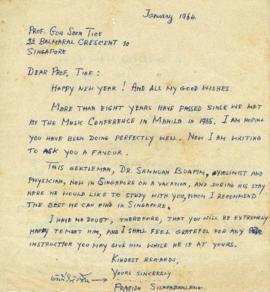 January 1964.
Prof. Goh Soon Tioe
22 Balmoral Crescent 10
Singapore
Dear Prof. Tioe:
Happy New Year! And all my good wishes.
More than eight years have passed since we met
at the Music Conference in Manila in 1955. I am hoping
you have been doing perfectly well. Now I am writing
to ask you a favour.
This gentleman, Dr. Sanhuan Buapim, violinist and
physician, now in Singapore on a vacation, and during his stay
here he would like to study with you, whom I recommend
the best he can find in Singapore.
I have no doubt, therefore, that you will be extremely
happy to meet him, and I shall feel grateful for any
instruction you may give him while he is at yours.
Kindest regards,
Yours sincerely
Prasidh Silapabanleng